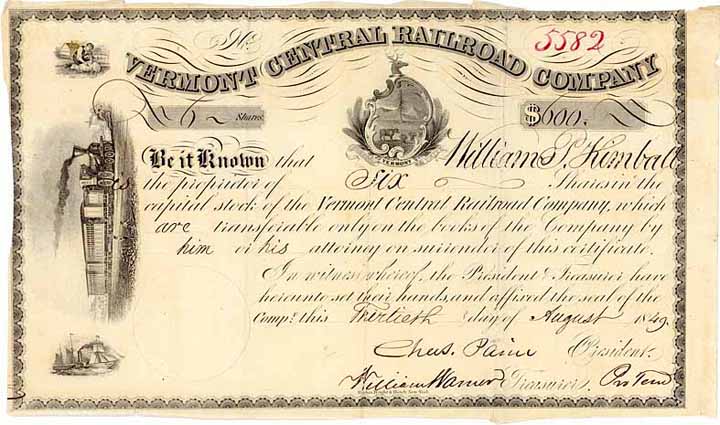 No. 5582
VERMONT CENTRAL RAILROAD COMPANY
6 Shares. $600.
VERMONT
Be it Known that William P. Kimball
is
the proprietor of Six Shares in the
capital stock of the Vermont Central Railroad Company, which
are transferable only on the books of the Company by
him or his attorney on surrender of this certificate.
In witness whereof, the President & Treasurer have
hereunto set their hands, and affixed the seal of the
Compy. this Thirtieth day of August 1849.
Chas. Paine President.
William Warner Treasurer, Pro Tem
New York